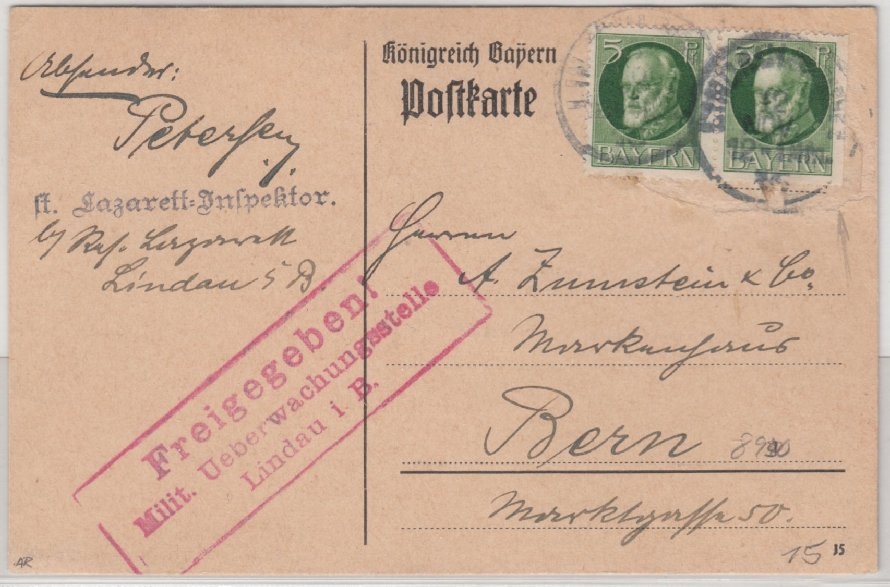 Absender:
Petersen,
st. Lazarett-Inspektor.
b/ Res. Lazarett
Lindau i B.
Königreich Bayern
Postkarte
5 Pf
BAYERN
5 Pf
BAYERN
Herren
A. Zumstein & Co.
Markenhaus
Bern
8990
Marktgasse 50.
Freigegeben!
Milit. Ueberwachungsstelle
Lindau i B.
15
J5
AR